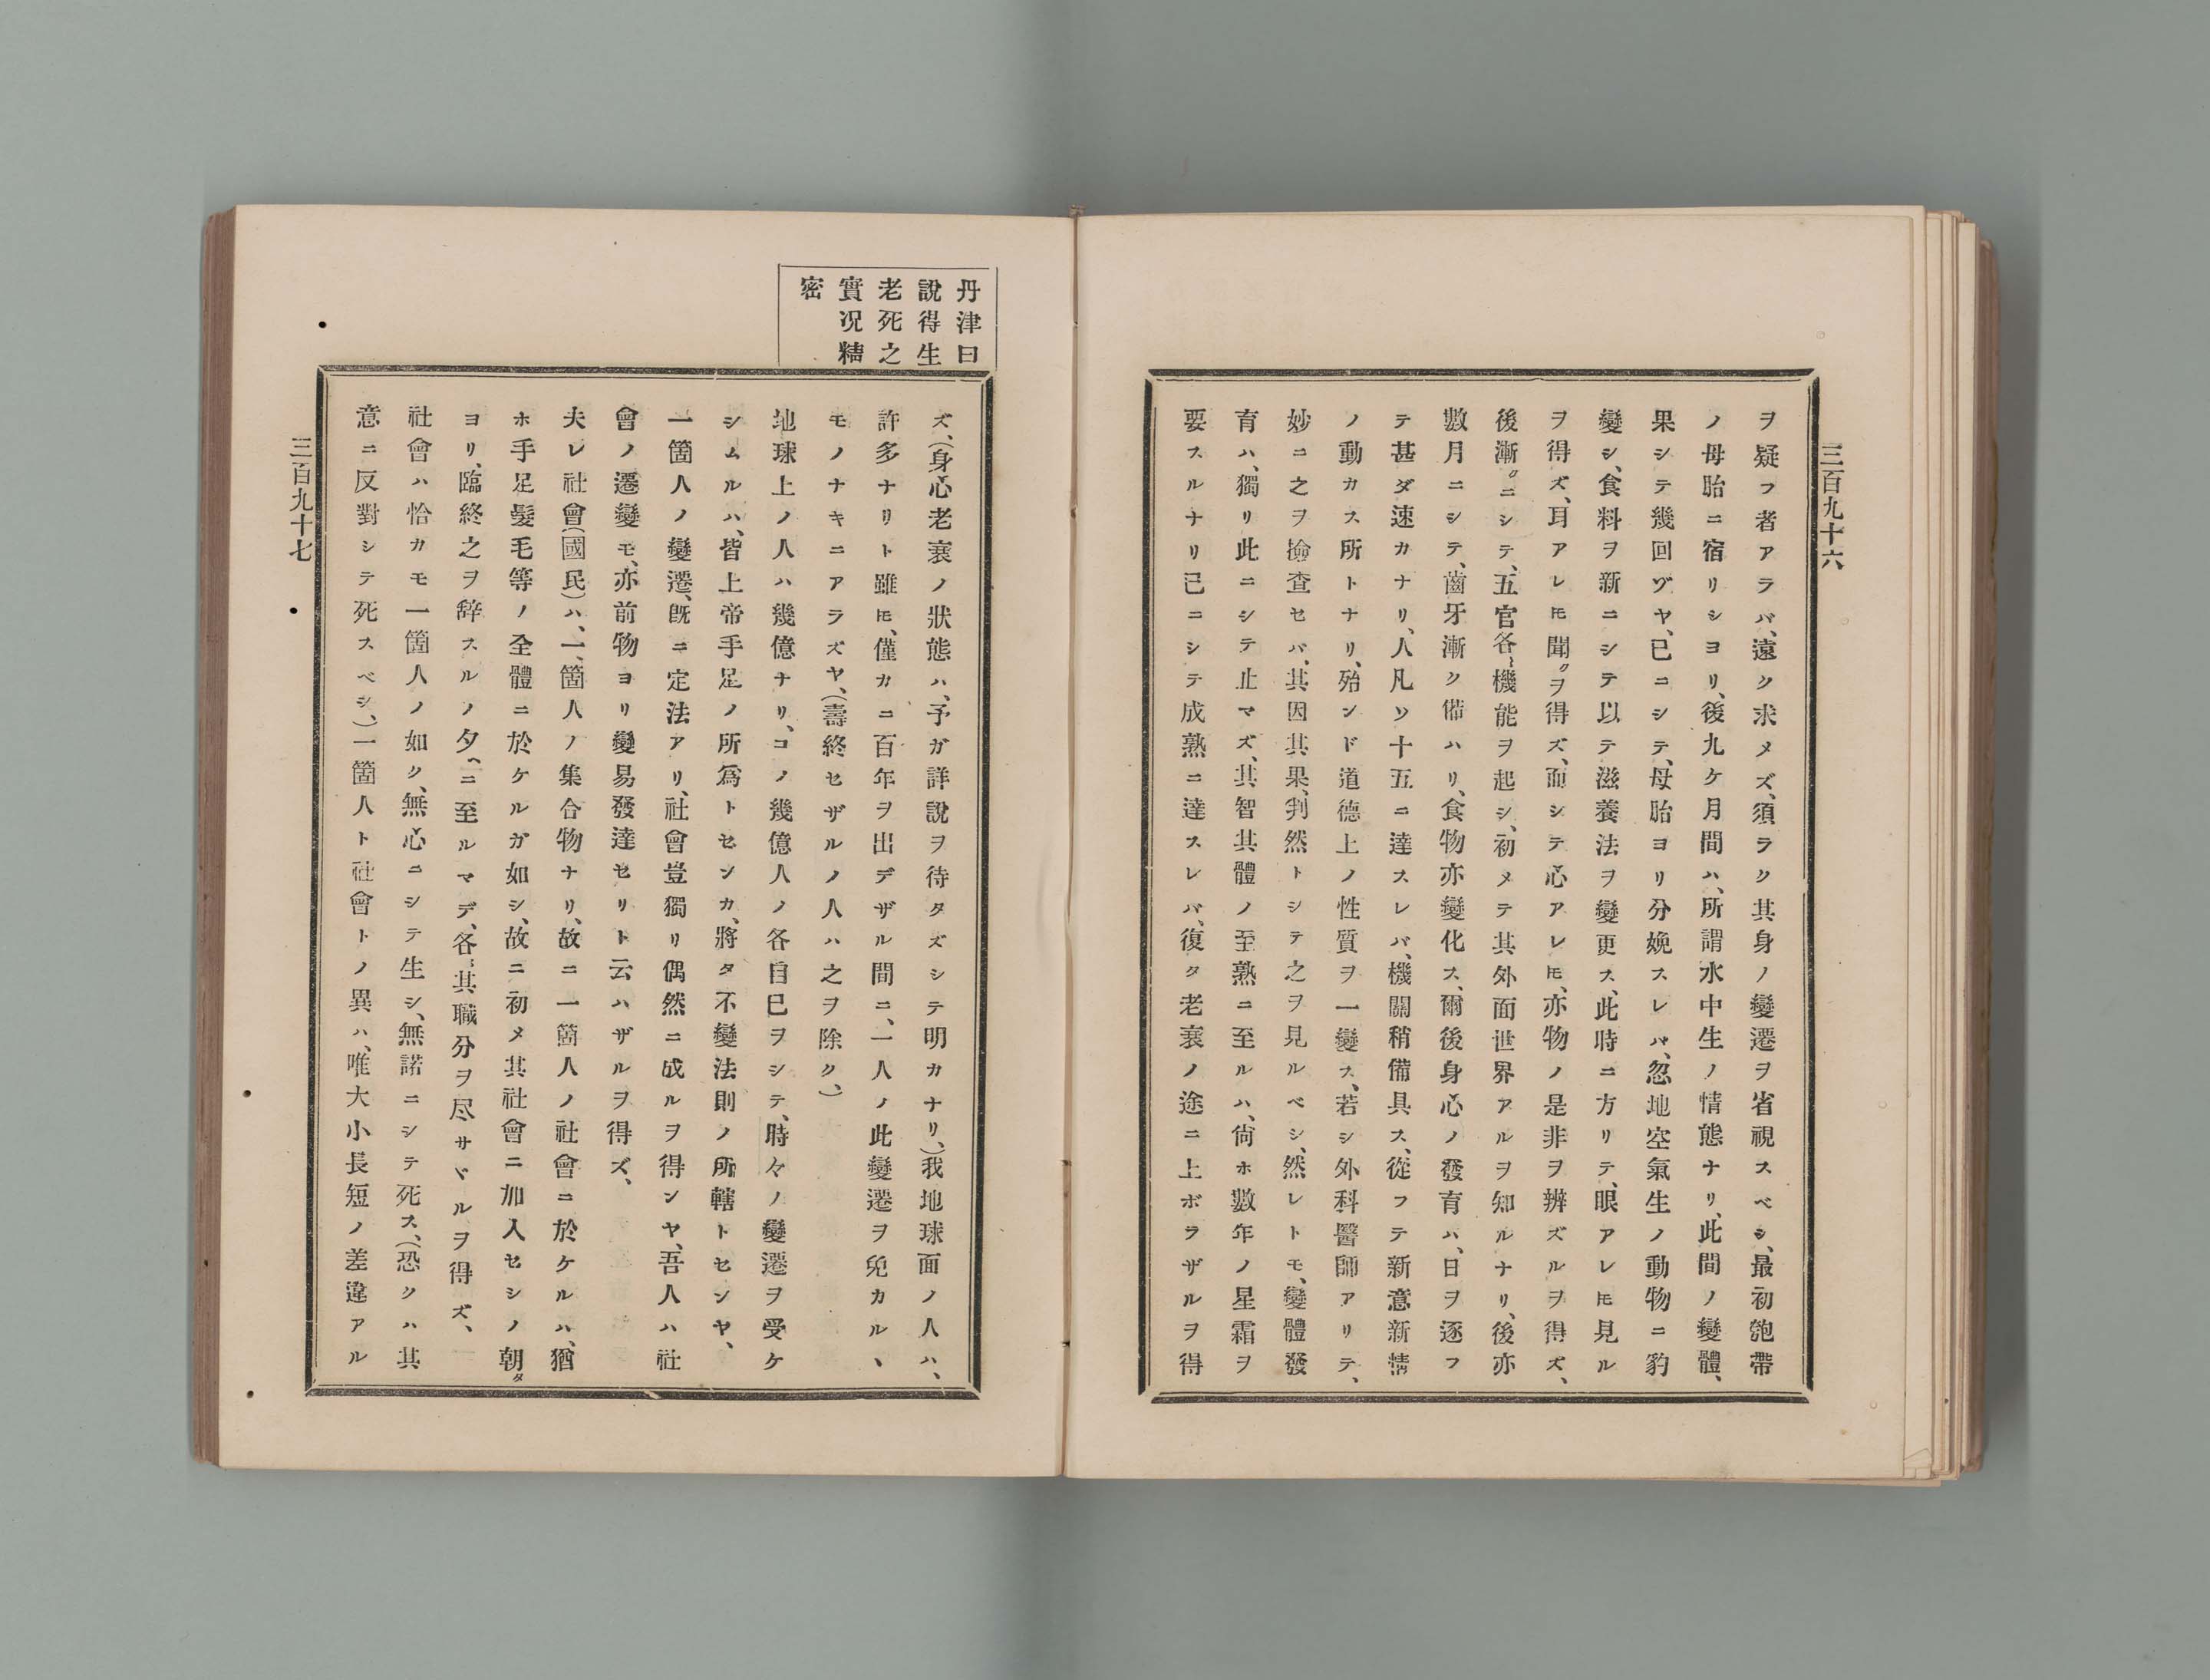 三百九十六
ヲ疑フ者アラバ、遠ク求メズ、須ラク其身ノ變遷ヲ省視スベシ、最初匏帶
ノ母胎ニ宿リシヨリ、後九ケ月間ハ、所謂水中生ノ情態ナリ、此間ノ變體、
果シテ幾回ゾヤ、已ニシテ、母胎ヨリ分娩スレバ、忽地空氣生ノ動物ニ豹
變シ、食料ヲ新ニシテ以テ滋養法ヲ變更ス、此時ニ方リテ、眼アレ𪜈見ル
ヲ得ズ、耳アレ𪜈聞クヲ得ズ、而シテ心アレ𪜈、亦物ノ是非ヲ辨ズルヲ得ズ、
後漸クニシテ、五官各〻機能ヲ起シ、初メテ其外面世界アルヲ知ルナリ、後亦
數月ニシテ、齒牙漸ク備ハリ、食物亦變化ス、爾後身心ノ發育ハ、日ヲ逐フ
テ甚ダ速カナリ、人凡ソ十五ニ達スレバ、機關稍備具ス、從フテ新意新情
ノ動カス所トナリ、殆ンド道德上ノ性質ヲ一變ス、若シ外科醫師アリテ、
妙ニ之ヲ撿査セバ、其因其果、判然トシテ之ヲ見ルベシ、然レトモ、變體發
育ハ、獨リ此ニシテ止マズ、其智其體ノ至熟ニ至ルハ、尙ホ數年ノ星霜ヲ
要スルナリ已ニシテ成熟ニ達スレバ、復タ老衰ノ途ニ上ボラザルヲ得
丹津曰
說得生
老死之
實况精
密
ズ、(身心老衰ノ狀態ハ、予ガ詳說ヲ待タズシテ明カナリ、)我地球面ノ人ハ、
許多ナリト雖𪜈、僅カニ百年ヲ出デザル間ニ、一人ノ此變遷ヲ免カルヽ
モノナキニアラズヤ、(壽終セザルノ人ハ之ヲ除ク、)
地球上ノ人ハ幾億ナリ、コノ幾億人ノ各自己ヲシテ、時々ノ變遷ヲ受ケ
シムルハ、皆上帝手足ノ所爲トセンカ、將タ不變法則ノ所轄トセンヤ、
一箇人ノ變遷、既ニ定法アリ、社會豈獨リ偶然ニ成ルヲ得ンヤ、吾人ハ社
會ノ遷變モ、亦前物ヨリ變易發達セリト云ハザルヲ得ズ、
夫レ社會(國民)ハ、一箇人ノ集合物ナリ、故ニ一箇人ノ社會ニ於ケルハ、猶
ホ手足髮毛等ノ全體ニ於ケルガ如シ、故ニ初メ其社會ニ加入セシノ朝タ
ヨリ、臨終之ヲ辞スルノ夕ヘニ至ルマデ、各〻其職分ヲ尽サヾルヲ得ズ、
社會ハ恰カモ一箇人ノ如ク、無心ニシテ生シ、無諾ニシテ死ス、(恐クハ其
意ニ反對シテ死スベシ、)一箇人ト社會トノ異ハ、唯大小長短ノ差違アル
三百九十七